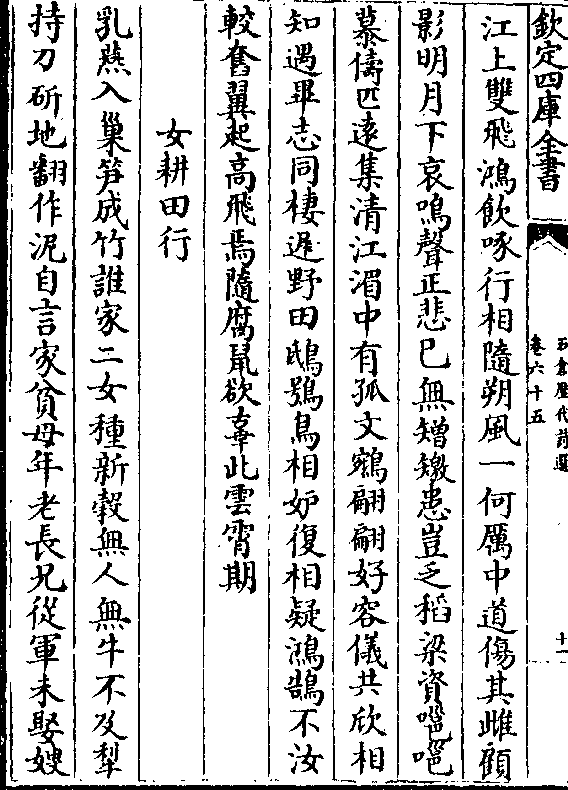 欽定四庫全書
石倉歷代詩選
卷六十五
十一
江上雙飛鴻飲啄行相隨朔風一何厲中道傷其雌顧
影明月下哀鳴聲正悲已無矰繳患豈乏稻粱資嗈嗈
慕儔匹遠集清江湄中有孤文鵷翩翩好容儀共欣相
知遇畢志同棲遲野田鴟鴞鳥相妒復相疑鴻鵠不汝
較奮翼起高飛焉隨腐鼠欲辜此雲霄期
女耕田行
乳燕入巢筍成竹誰家二女種新穀無人無牛不及犁
持刀斫地翻作泥自言家貧母年老長兄從軍未娶嫂